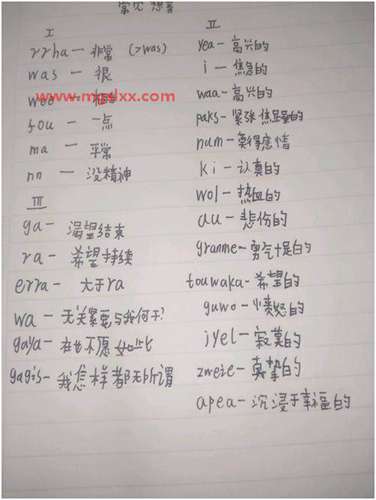 常见想音
I
rrha — 非常 (>was)
was — 很
fou — 一点
ma — 平常
nn — 没精神
III
ga — 渴望结束
ra — 希望持续
erra — 大于ra
wa — 无关紧要与我何干?
gaya — 在也不愿如此
gagis — 我怎样都无所谓
II
yea — 高兴的
i — 焦急的
waa — 高兴的
paks — 紧张焦虑的
num — 莫得感情
ki — 认真的
wol — 热血的
au — 悲伤的
granme — 勇气十足的
touwaka — 希望的
guwo — 愤怒的
jyel — 寂寞的
zweie — 真挚的
apea — 沉浸于幸福的